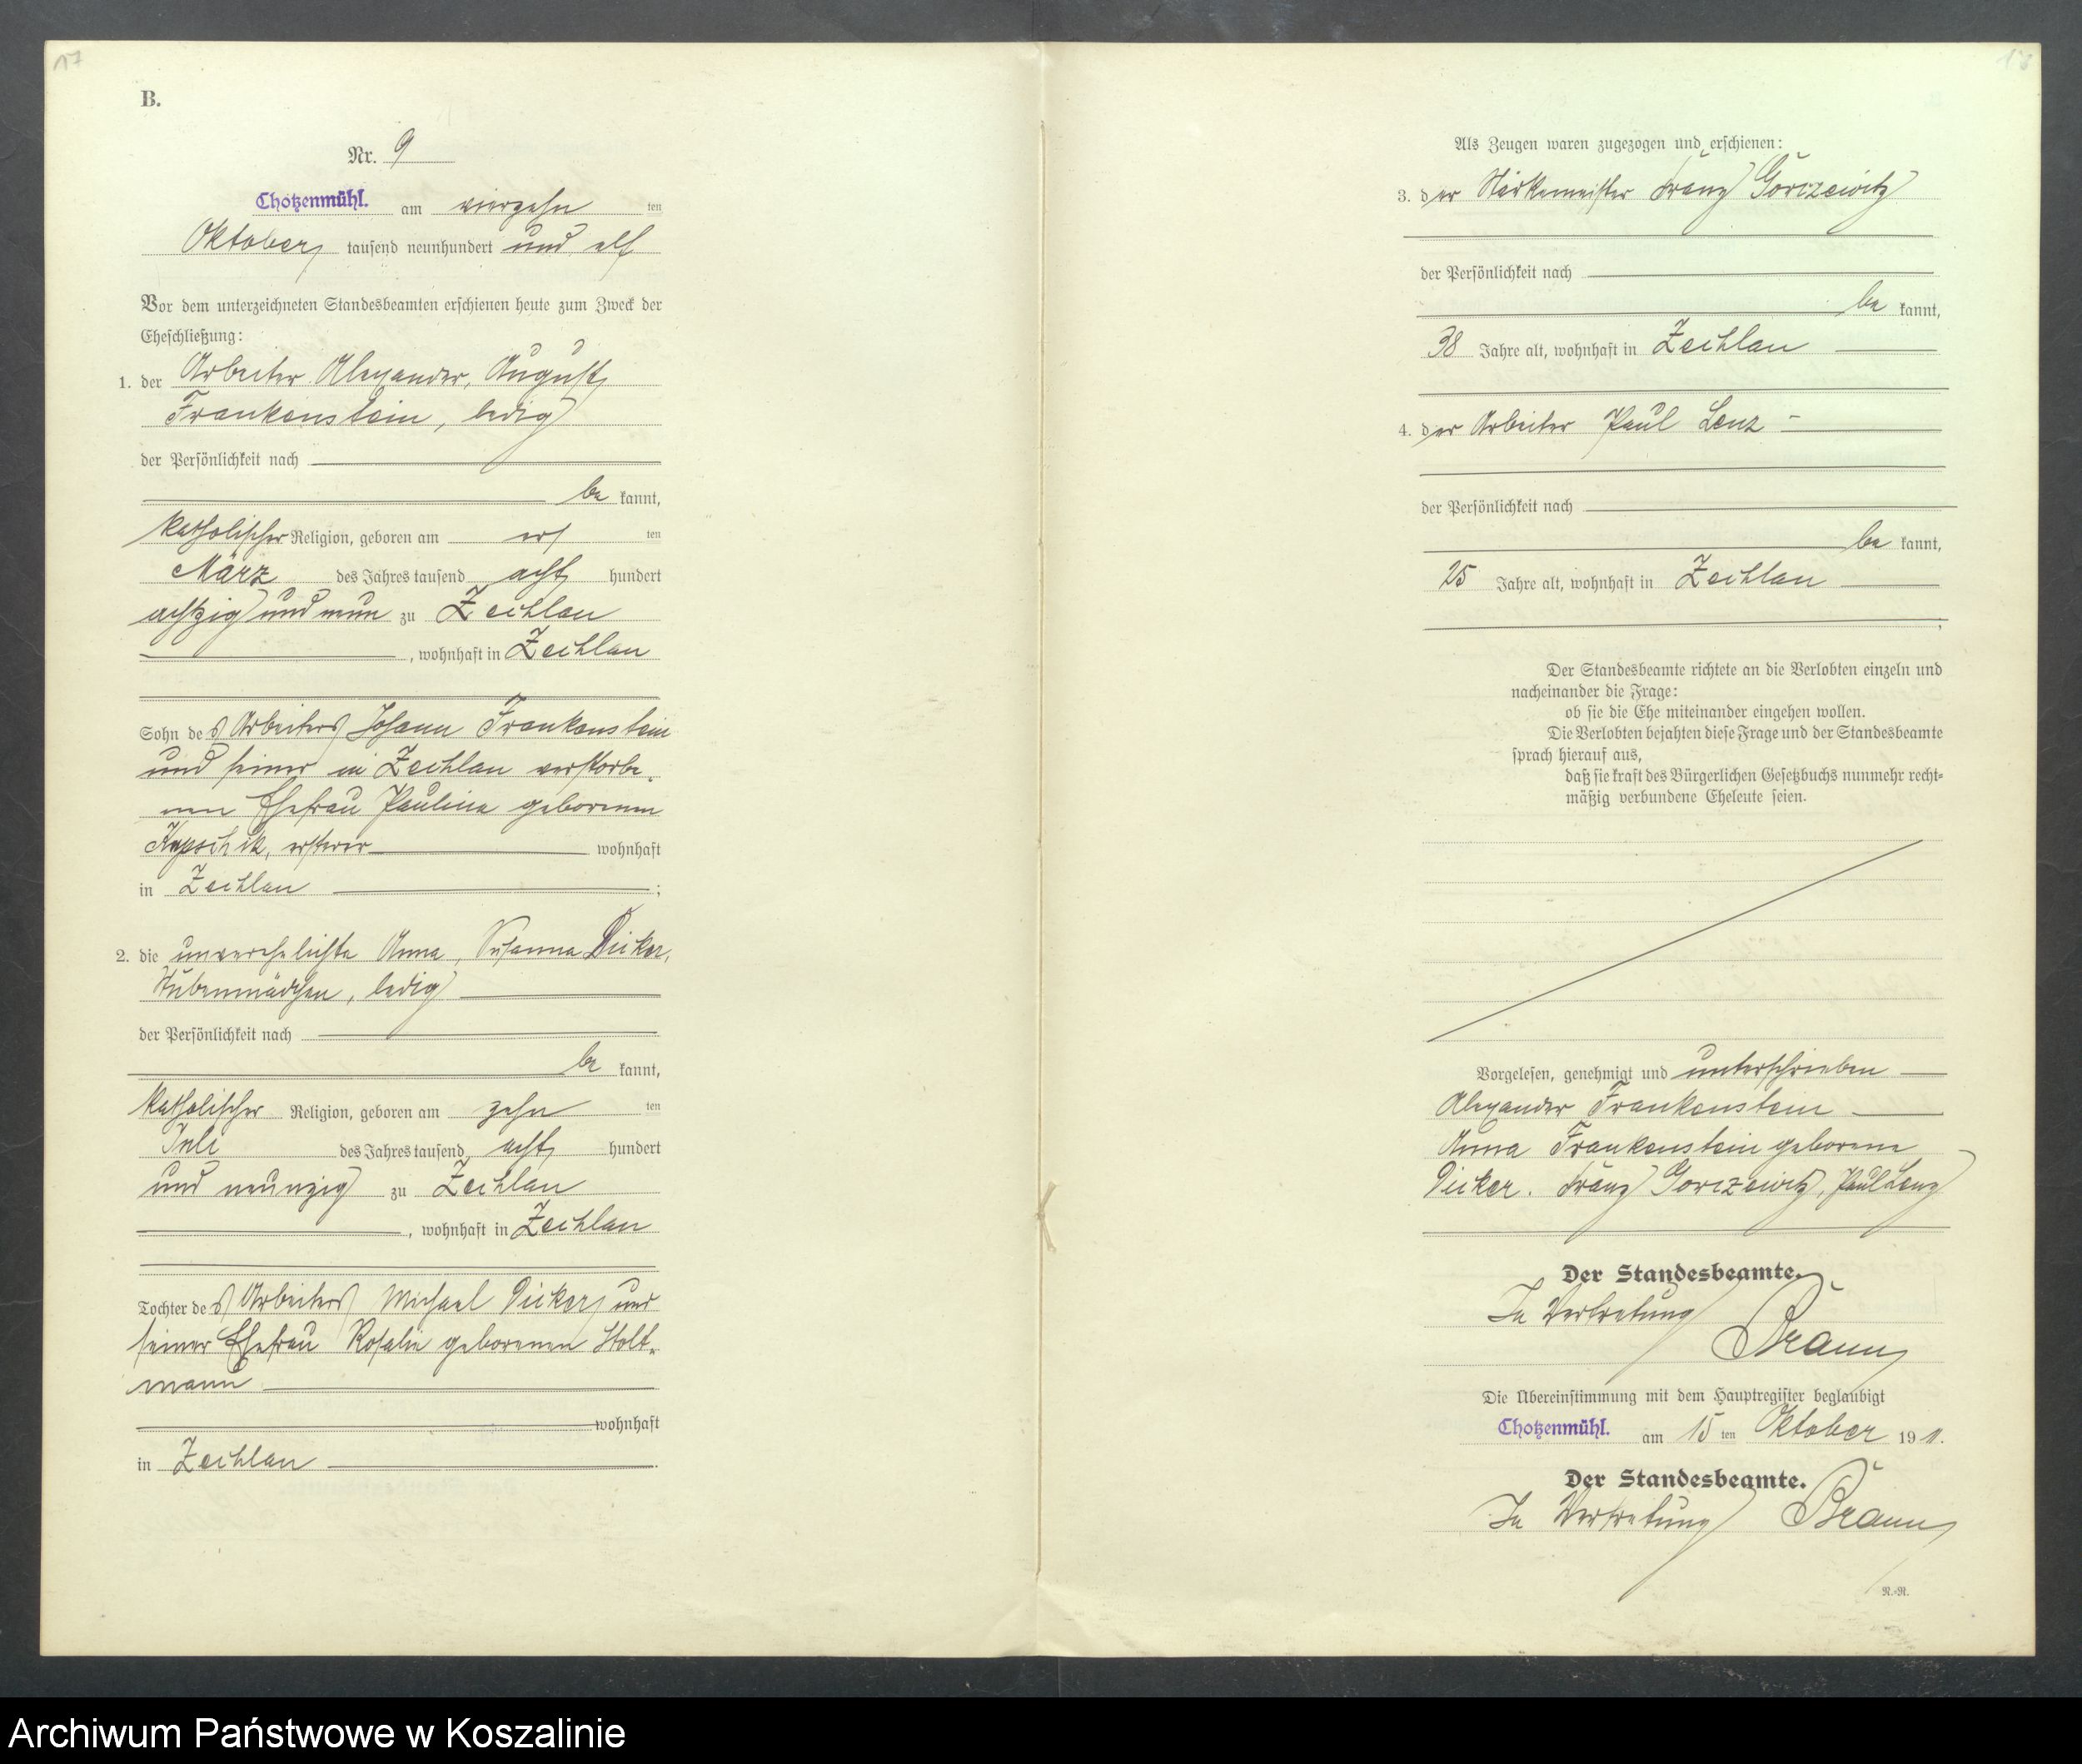 17
B.
Nr. 9
Chotzenmühl. am vierzehn ten
Oktober tausend neunhundert und elf
Vor dem unterzeichneten Standesbeamten erschienen heute zum Zweck der
Eheschließung:
1. der Arbeiter Alexander, August
Frankenstein, ledig
der Persönlichkeit nach
be kannt,
katholischer Religion, geboren am ers ten
März des Jahres tausend acht hundert
achtzig und neun zu Zechlau
, wohnhaft in Zechlau
Sohn des Arbeiters Johann Frankenstein
und seiner in Zechlau verstorbe-
nen Ehefrau Pauline geborenen
ersterer wohnhaft
in Zechlau ;
2. die unverehelichte Anna, Susanna Dicker,
Stubenmädchen, ledig
der Persönlichkeit nach
be kannt,
katholischer Religion, geboren am zehn ten
Juli des Jahres tausend acht hundert
und neunzig zu Zechlau
, wohnhaft in Zechlau
Tochter des Arbeiters Michael Dicker und
seiner Ehefrau Rosalie geborenen Holt-
mann
wohnhaft
in Zechlau .
18
Als Zeugen waren zugezogen und erschienen:
3. der Franz Gorczewitz
der Persönlichkeit nach
be kannt,
38 Jahre alt, wohnhaft in Zechlau
4. der Arbeiter Paul Lenz
der Persönlichkeit nach
be kannt,
25 Jahre alt, wohnhaft in Zechlau
;
Der Standesbeamte richtete an die Verlobten einzeln und
nacheinander die Frage:
ob sie die Ehe miteinander eingehen wollen.
Die Verlobten bejahten diese Frage und der Standesbeamte
sprach hierauf aus,
daß sie kraft des Bürgerlichen Gesetzbuchs nunmehr recht-
mäßig verbundene Eheleute seien.
Vorgelesen, genehmigt und unterschrieben
Alexander Frankenstein
Anna Frankenstein geborene
Dicker. Franz Gorczewitz, Paul Lenz
Der Standesbeamte.
In Vertretung
Braun
Die Übereinstimmung mit dem Hauptregister beglaubigt
Chotzenmühl. am 15 ten Oktober 19 11.
Der Standesbeamte.
In Vertretung Braun
R.-R.
Archiwum Państwowe w Koszalinie